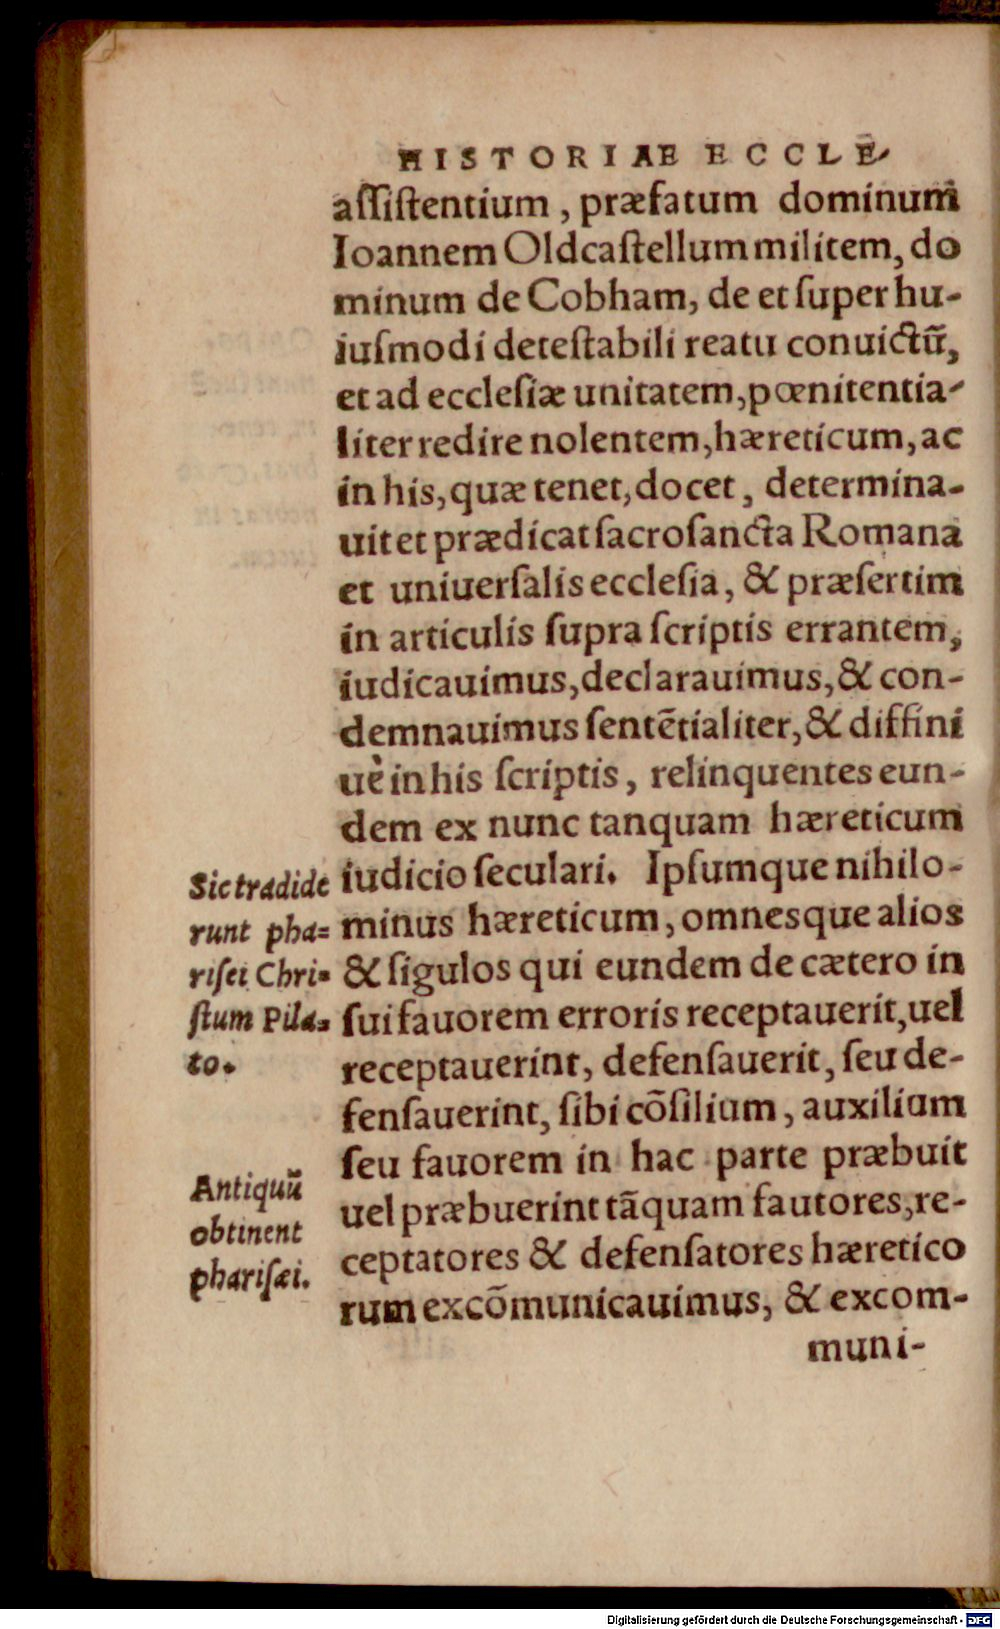 HISTORIAE ECCLE-
aſſiſtentium, præfatum dominum
Ioannem Oldcaſtellum militem, do
minum de Cobham, de et ſuper hu-
iuſmodi deteſtabili reatu conuictū,
et ad eccleſiæ unitatem, pœnitentia-
liter redire nolentem, hæreticum, ac
in his, quæ tenet, docet, determina-
uit et prædicat ſacroſancta Romana
et uniuerſalis eccleſia, & præſertim
in articulis ſupra ſcriptis errantem,
iudicauimus, declarauimus, & con-
demnauimus ſentētialiter, & diffini
uè in his ſcriptis, relinquentes eun-
dem ex nunc tanquam hæreticum
iudicio ſeculari. Ipſumque nihilo-
minus hæreticum, omnesque alios
& ſigulos qui eundem de cætero in
ſui fauorem erroris receptauerit, uel
receptauerint, defenſauerit, ſeu de-
fenſauerint, ſibi cōſilium, auxilium
ſeu fauorem in hac parte præbuit
uel præbuerint tāquam fautores, re-
ceptatores & defenſatores hæretico
rum excōmunicauimus, & excom-
muni-
Sic tradide
runt pha=
riſei Chri=
ſtum Pila=
to.
Antiquū
obtinent
phariſæi.
Digitalisierung gefördert durch die Deutsche Forschungsgemeinschaft - DFG